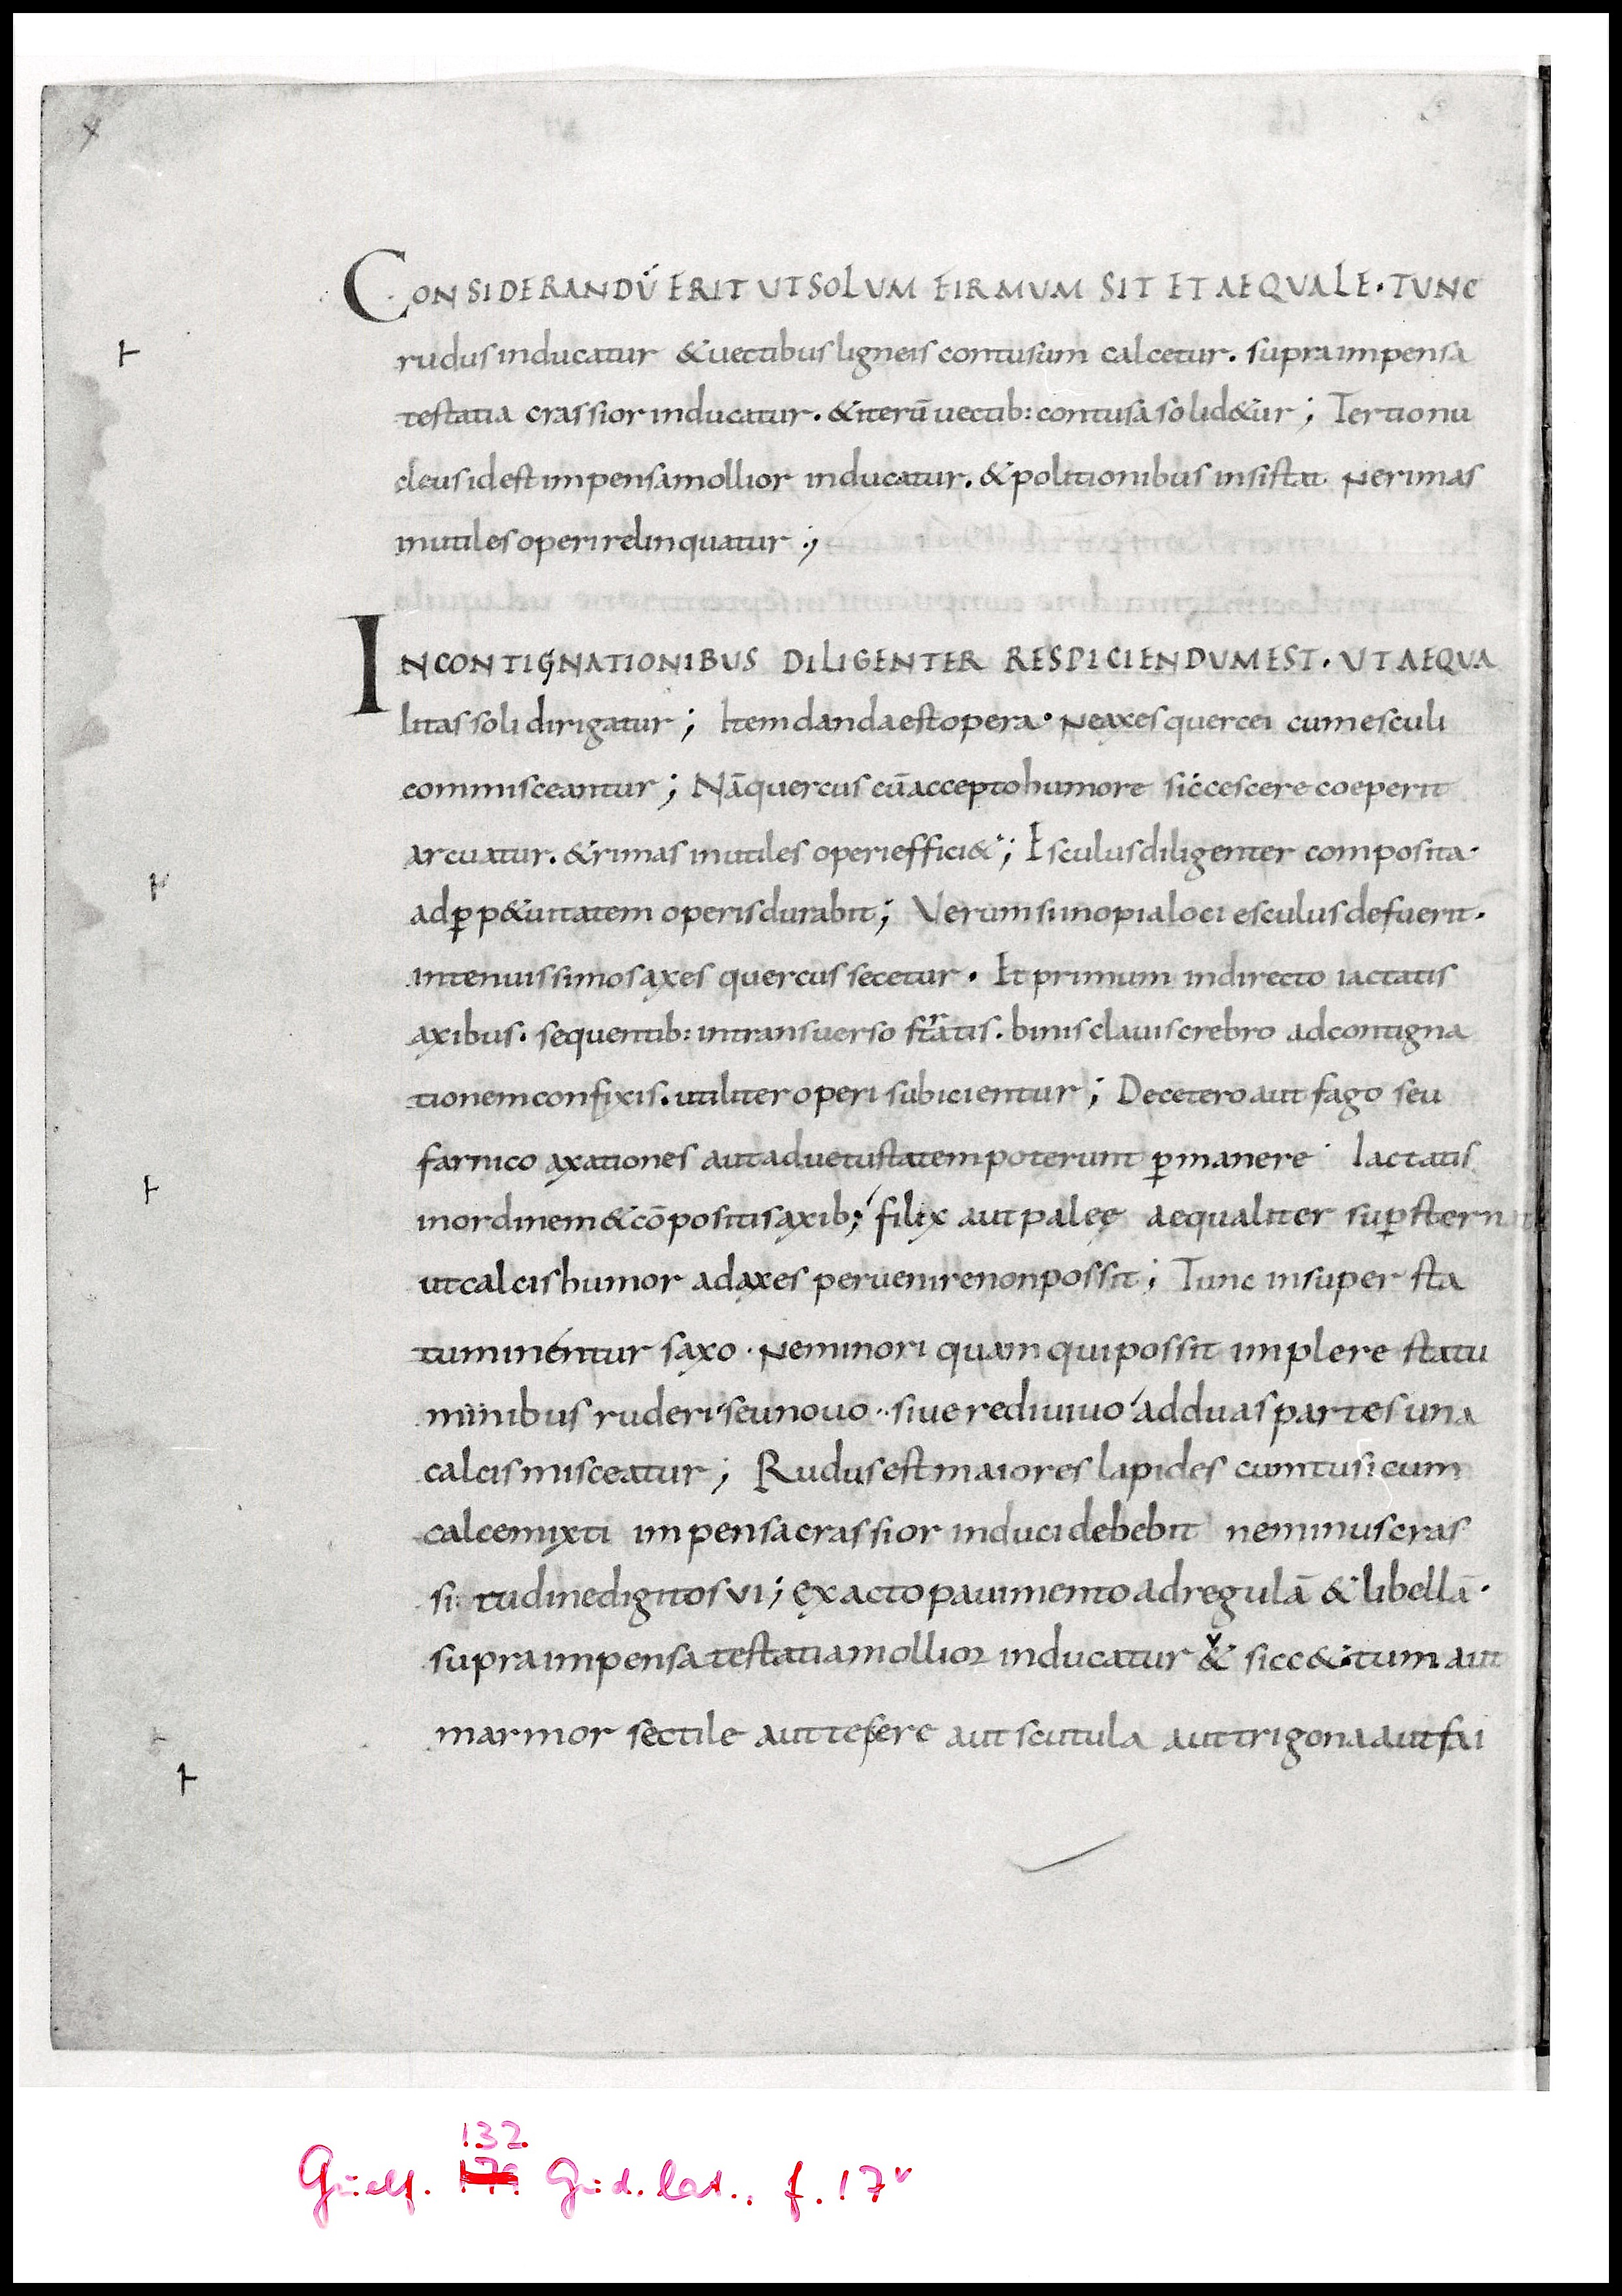 CONSIDERANDŪ ERIT UT SOLUM FIRMUM SIT ET AEQUALE. TUNC
rudus inducatur & uectibus ligneis contusum calcetur. supra impensa
testatia crassior inducatur. & iterū uectib: contusa solid&ur; Tertio nu
cleus id est impensa mollior inducatur. & politionibus insistat Ne rimas
inutiles operi relinquatur;
IN CONTIGNATIONIBUS DILIGENTER RESPICIENDUM EST. UT AEQUA
litas soli dirigatur; Item danda est opera. Ne axes quercei cum esculi
commisceantur; Nā quercus cū accepto humore siccescere coeperit
arcuatur. & rimas inutiles operi effici&; Esculus diligenter composita.
ad ꝑp&uitatem operis durabit; Verum si inopia loci esculus defuerit.
in tenuissimos axes quercus secetur. Et primum in directo iactatis
axibus. sequentib: in transuerso stratis. binis clauis crebro ad contigna
tionem confixis. utiliter operi subicientur; De cetero aut fago seu
farnico axationes aut ad uetustatem poterunt ꝑmanere Iactatis
in ordinem & cōpositis axib; filix aut palę aequaliter suꝑstern
ut calcis humor ad axes peruenire non possit; Tunc insuper sta
tuminentur saxo. Ne minori quam qui possit implere statu
minibus ruderi seu nouo. siue rediuiuo ad duas partes una
calcis misceatur; Rudus est maiores lapides cumtusi cum
calce mixti impensa crassior induci debebit ne minus cras
si tudine digitos VI; ęxacto pauimento ad regulā & libellā.
supra impensa testatia mollior inducatur & sicc&. tum aut
marmor sectile aut tesere aut scutula aut trigona aut fai
Guelf. 132 Gud. lat., f. 17v